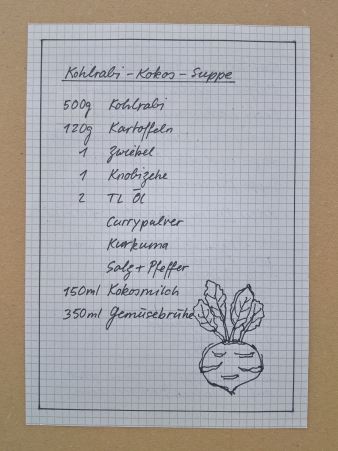 Kohlrabi-Kokos-Suppe
500g Kohlrabi
120g Kartoffeln
1 Zwiebel
1 Knobizehe
2 TL Öl
Currypulver
Kurkuma
Salz + Pfeffer
150ml Kokosmilch
350ml Gemüsebrühe